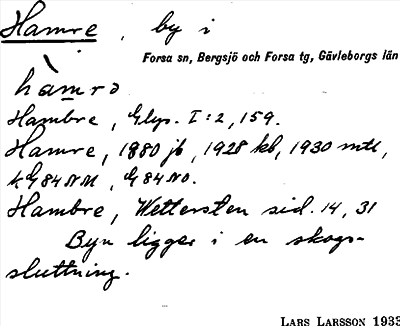 Hamre, by i
Forsa sn, Bergsjö och Forsa tg, Gävleborgs län
hàmrə
Hambre, Glys. I:2, 159.
Hamre, 1880 jb, 1928 kb, 1930 mtl,
kG84NM, G84NO.
Hambre, Wettersten sid. 14, 31
Byn ligger i en skogs-
sluttning.
LARS LARSSON 1933